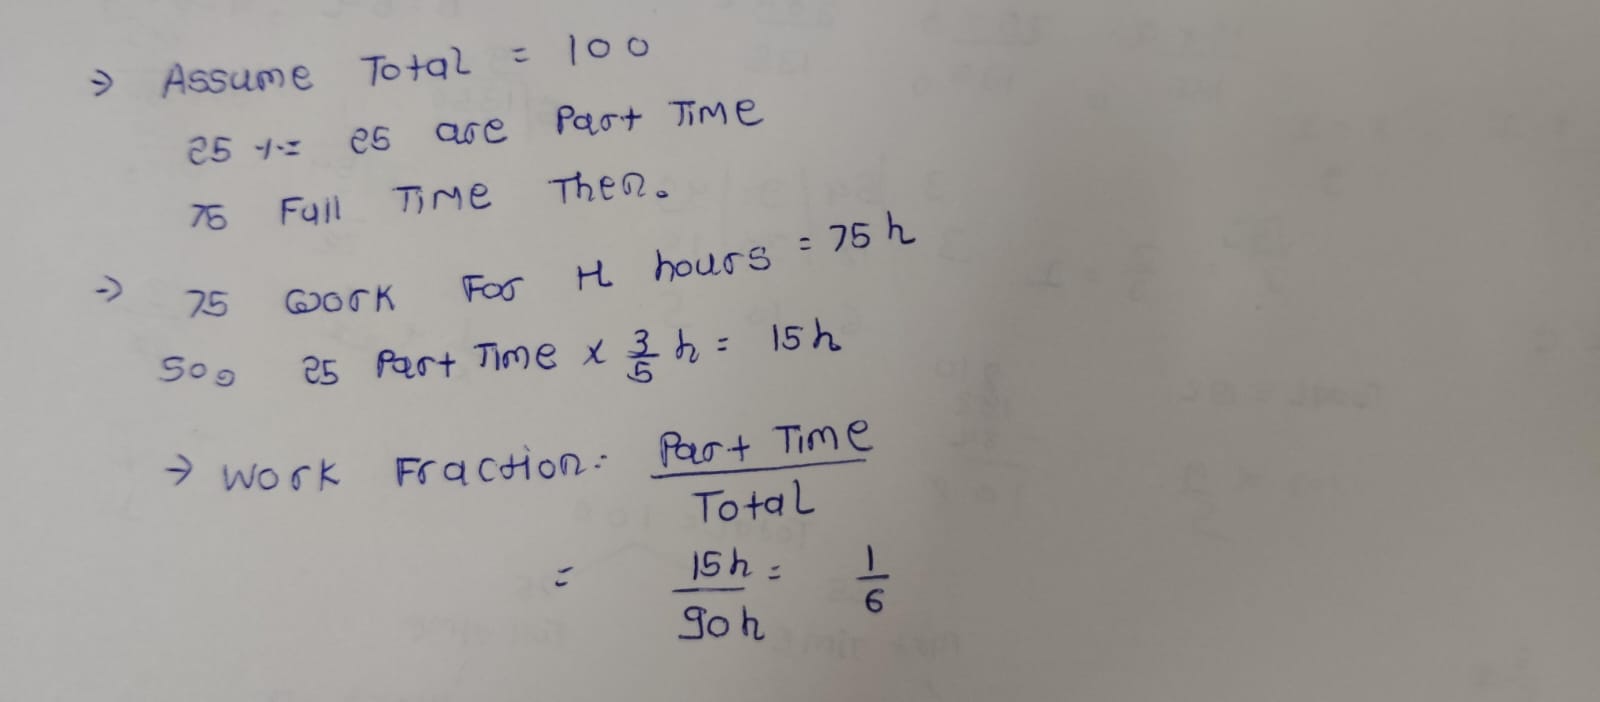 → Assume Total = 100
25 %= 25 are Part Time
75 Full Time Then.
→ 75 work For H hours = 75 h
Soo 25 Part Time x 3/5 h = 15 h
→ Work Fraction:- Part Time / Total
= 15h / 90h = 1/6